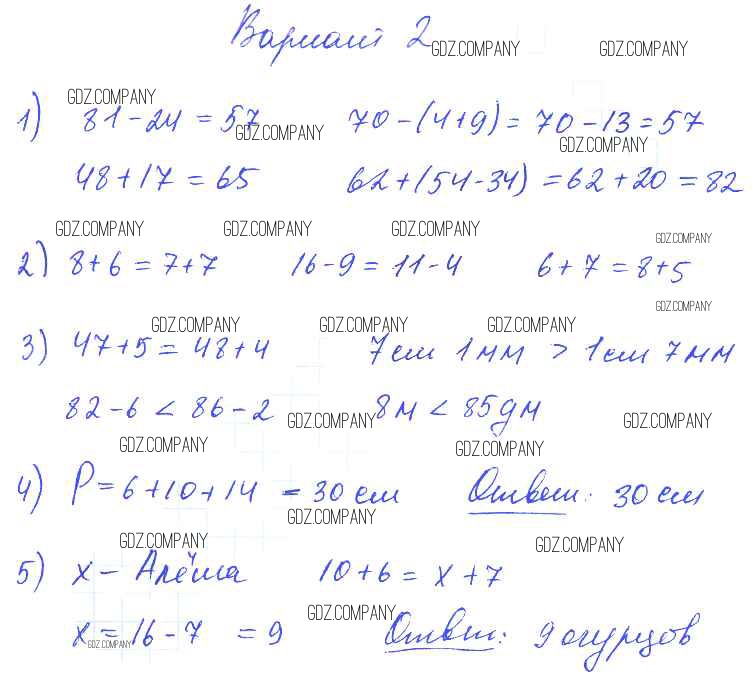 Вариант 2
GDZ.COMPANY GDZ.COMPANY
GDZ.COMPANY
1) 81-24=57 70-(4+9)=70-13=57
GDZ.COMPANY GDZ.COMPANY
48+17=65 62+(54-34)=62+20=82
GDZ.COMPANY GDZ.COMPANY GDZ.COMPANY GDZ.COMPANY
2) 8+6=7+7 16-9=11-4 6+7=8+5
GDZ.COMPANY
GDZ.COMPANY GDZ.COMPANY GDZ.COMPANY
3) 47+5=48+4 7см 1мм > 1см 7мм
82-6<86-2 8м<85дм
GDZ.COMPANY GDZ.COMPANY
GDZ.COMPANY GDZ.COMPANY
4) P=6+10+14=30 см Ответ: 30 см
GDZ.COMPANY
GDZ.COMPANY GDZ.COMPANY
5) x - Алёша 10+6=x+7
GDZ.COMPANY
x=16-7=9 Ответ: 9 огурцов
GDZ.COMPANY